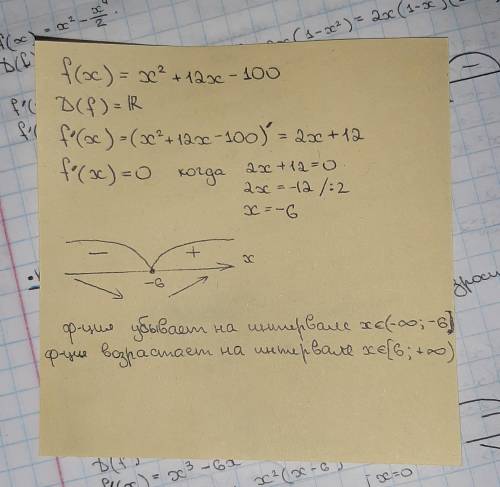 f(x) = x² - x⁴/2.
f(x) = x² + 12x - 100
D(f) = ℝ
f'(x) = (x² + 12x - 100)' = 2x + 12
f'(x) = 0 когда 2x + 12 = 0
2x = -12 /:2
x = -6
- +
x
-6
ф-ция убывает на интервале x∈(-∞; -6]
ф-ция возрастает на интервале x∈[6; +∞)
= x³ - 6x
x²(x-6)
x=0